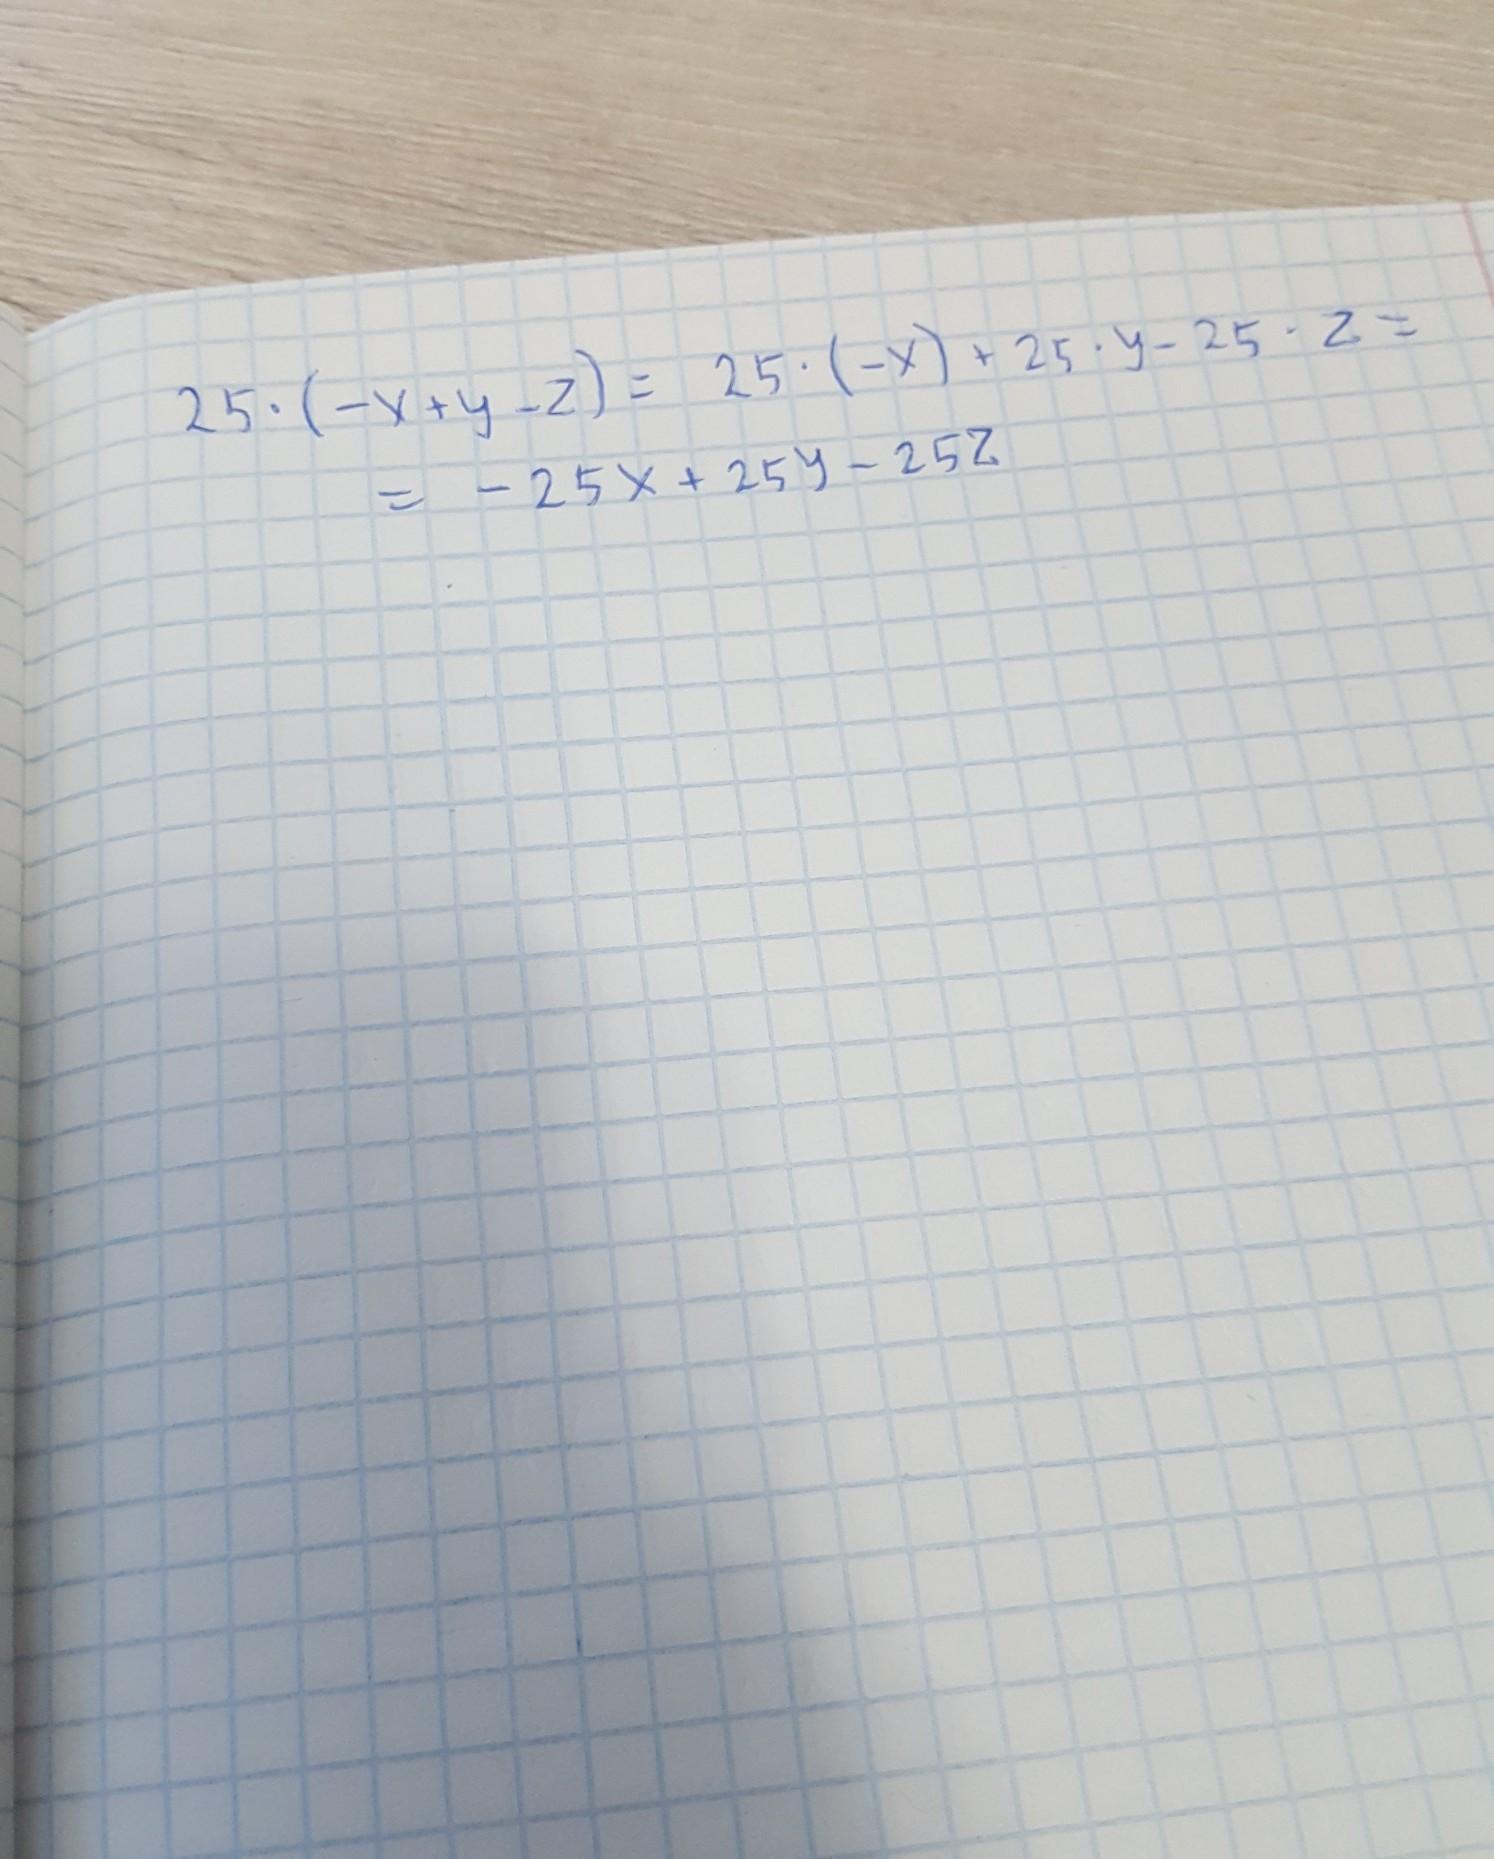 25·(-x+y-z)= 25·(-x)+25·y-25·z=
= -25x+25y-25z